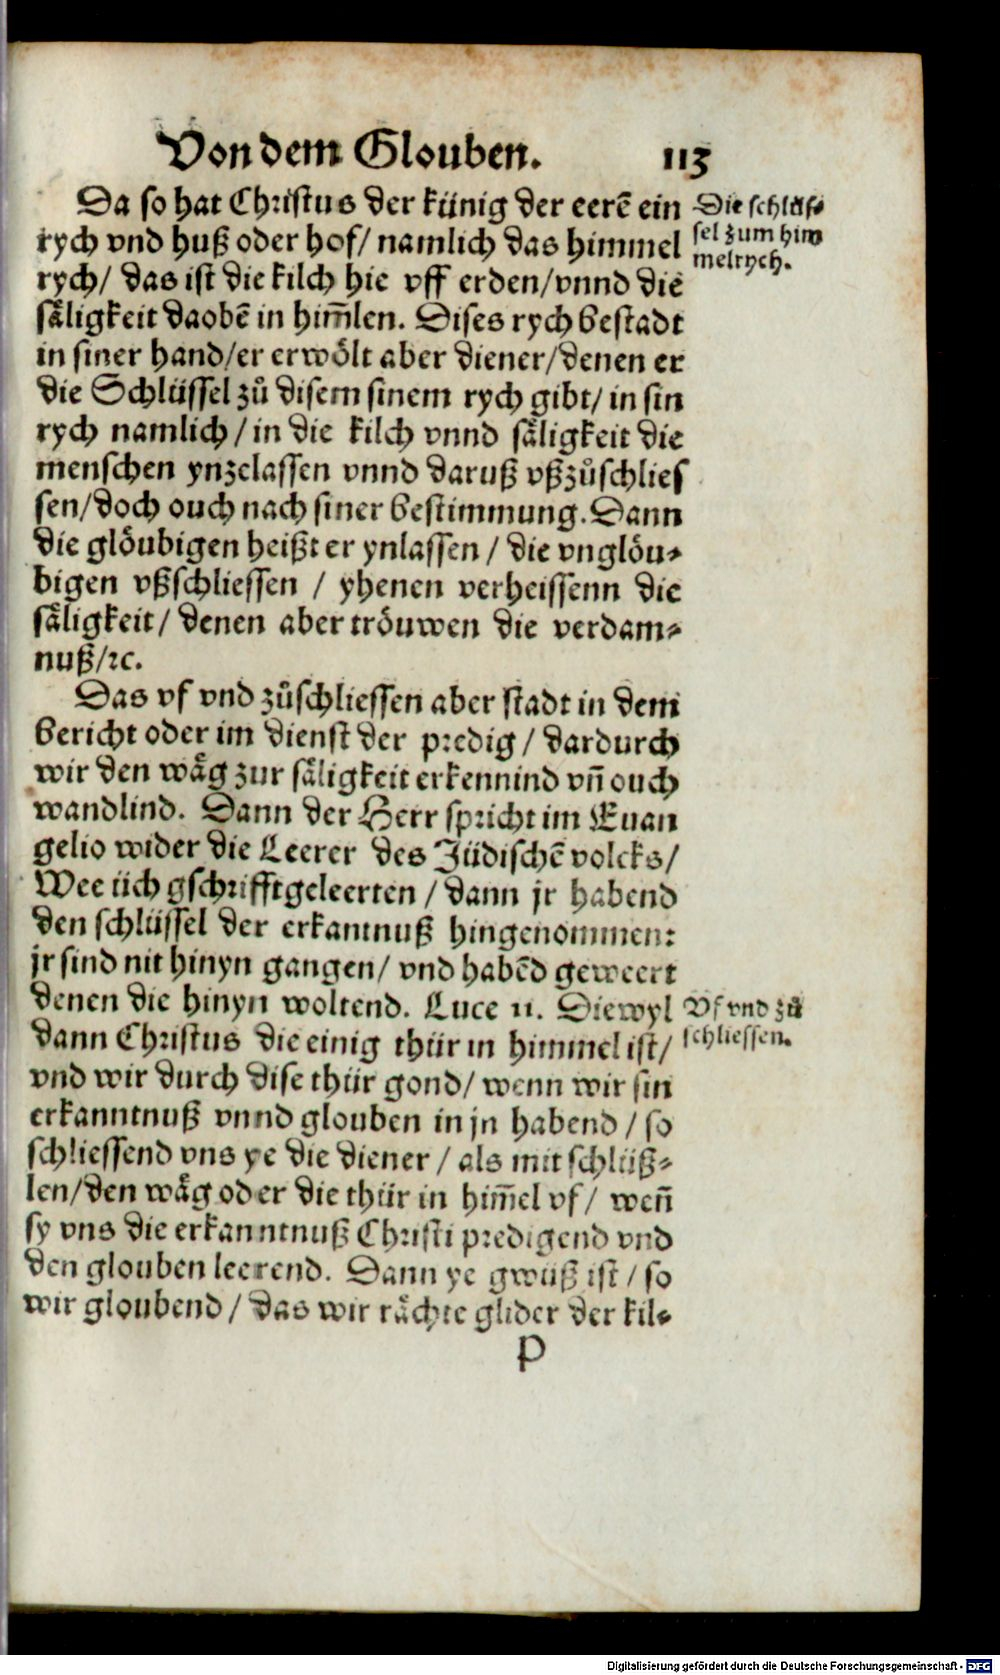 Von dem Glouben. 113
Da so hat Christus der künig der eerē ein
rych vnd huß oder hof/ namlich das himmel
rych/ das ist die kilch hie vff erden/vnnd die
säligkeit daobē in him̄len. Dises rych bestadt
in siner hand/er erwölt aber diener/denen er
die Schlüssel zů disem sinem rych gibt/ in sin
rych namlich/in die kilch vnnd säligkeit die
menschen ynzelassen vnnd daruß vßzůschlies
sen/doch ouch nach siner bestimmung. Dann
die glöubigen heißt er ynlassen/ die vnglöu⸗
bigen vßschliessen / yhenen verheissenn die
säligkeit/ denen aber tröuwen die verdam⸗
nuß/ꝛc.
Die schlüs⸗
sel zum him
melrych.
Das vf vnd zůschliessen aber stadt in dem
bericht oder im dienst der predig/ dardurch
wir den wäg zur säligkeit erkennind vn̄ ouch
wandlind. Dann der Herr spricht im Euan
gelio wider die Leerer des Jüdischē volcks/
Wee üch gschrifftgeleerten/dann jr habend
den schlüssel der erkantnuß hingenommen:
jr sind nit hinyn gangen/ vnd habēd geweert
denen die hinyn woltend. Luce 11. Diewyl
dann Christus die einig thür in himmel ist/
vnd wir durch dise thür gond/ wenn wir sin
erkanntnuß vnnd glouben in jn habend/so
schliessend vns ye die diener/als mit schlüß⸗
len/den wäg oder die thür in him̄el vf/ wen̄
sy vns die erkanntnuß Christi predigend vnd
den glouben leerend. Dann ye gwüß ist/so
wir gloubend/das wir rächte glider der kil⸗
Vf vnd zů
schliessen.
P
Digitalisierung gefördert durch die Deutsche Forschungsgemeinschaft - DFG